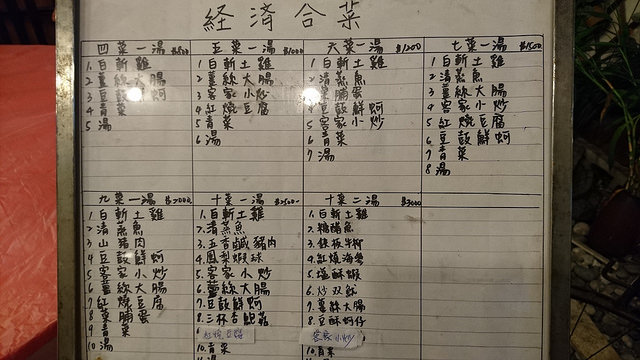 経済合菜
四菜一湯 $800
1. 白斬雞
2 薑絲大腸
3 豆鼓鮮蚵
4 青菜
5 湯
五菜一湯 $1000
1 白斬土雞
2 薑絲大腸
3 客家小炒
4 紅燒豆腐
5 青菜
6 湯
六菜一湯 $1200
1 白斬土雞
2 清蒸魚
3 菜脯蛋
4 豆鼓鮮蚵
5 客家小炒
6 青菜
7 湯
七菜一湯 $1500
1 白斬土雞
2 清蒸魚
3 薑絲大腸
4 客家小炒
5 紅燒豆腐
6 豆鼓鮮蚵
7 青菜
8 湯
九菜一湯 $2000
1 白斬土雞
2 清蒸魚
3 山豬肉
4 豆鼓鮮蚵
5 客家小炒
6 薑絲大腸
7 紅燒豆腐
8 菜脯蛋
9 青菜
10 湯
十菜一湯 $2500
1. 白斬土雞
2. 清蒸魚
3. 五香鹹豬肉
4. 鳳梨蝦球
5. 客家小炒
6. 薑絲大腸
7. 豆鼓鮮蚵
8. 三杯杏鮑菇
9 紅燒豆腐
10. 青菜
湯
十菜二湯 $3000
1. 白斬土雞
2. 糖醋魚
3. 鐵板牛柳
4. 紅燒海參
5. 塩酥蝦
6. 炒双魷
7. 薑絲大腸
8. 豆酥蚵仔
客家小炒
10. 青菜